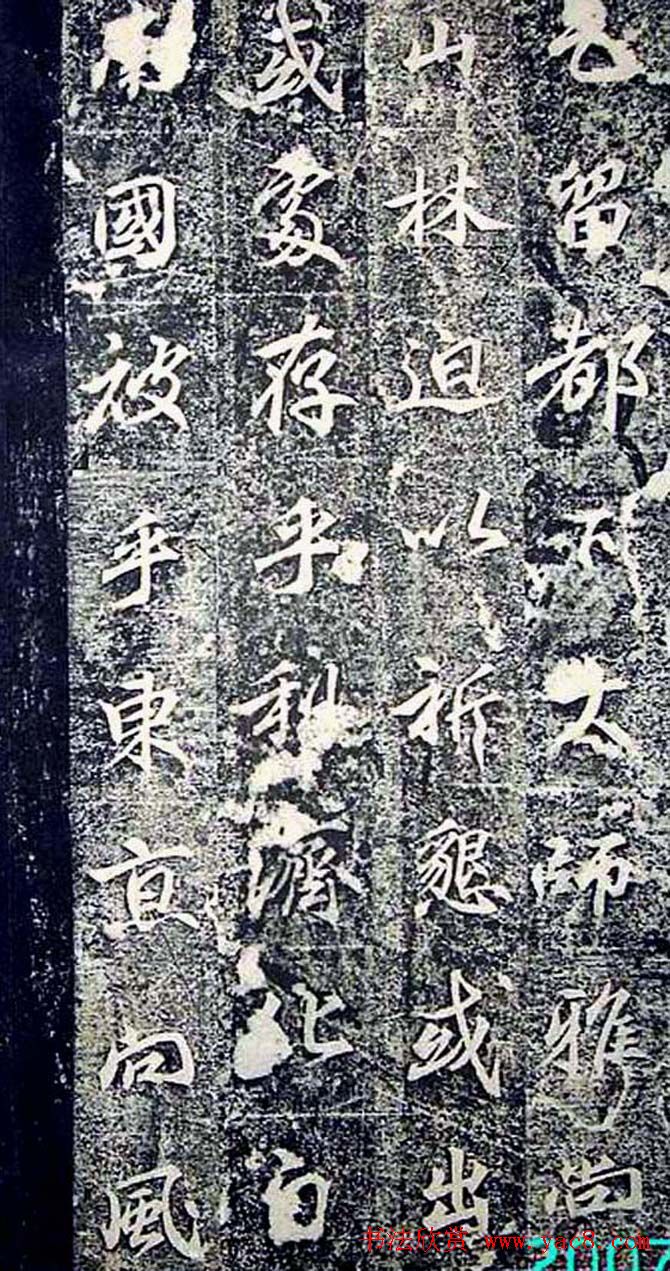 乞留都下大師雅尚
山林迫以祈懇或出
或處存乎利濟化自
南國被乎東向風
书法欣赏 www.yac8.com
2007